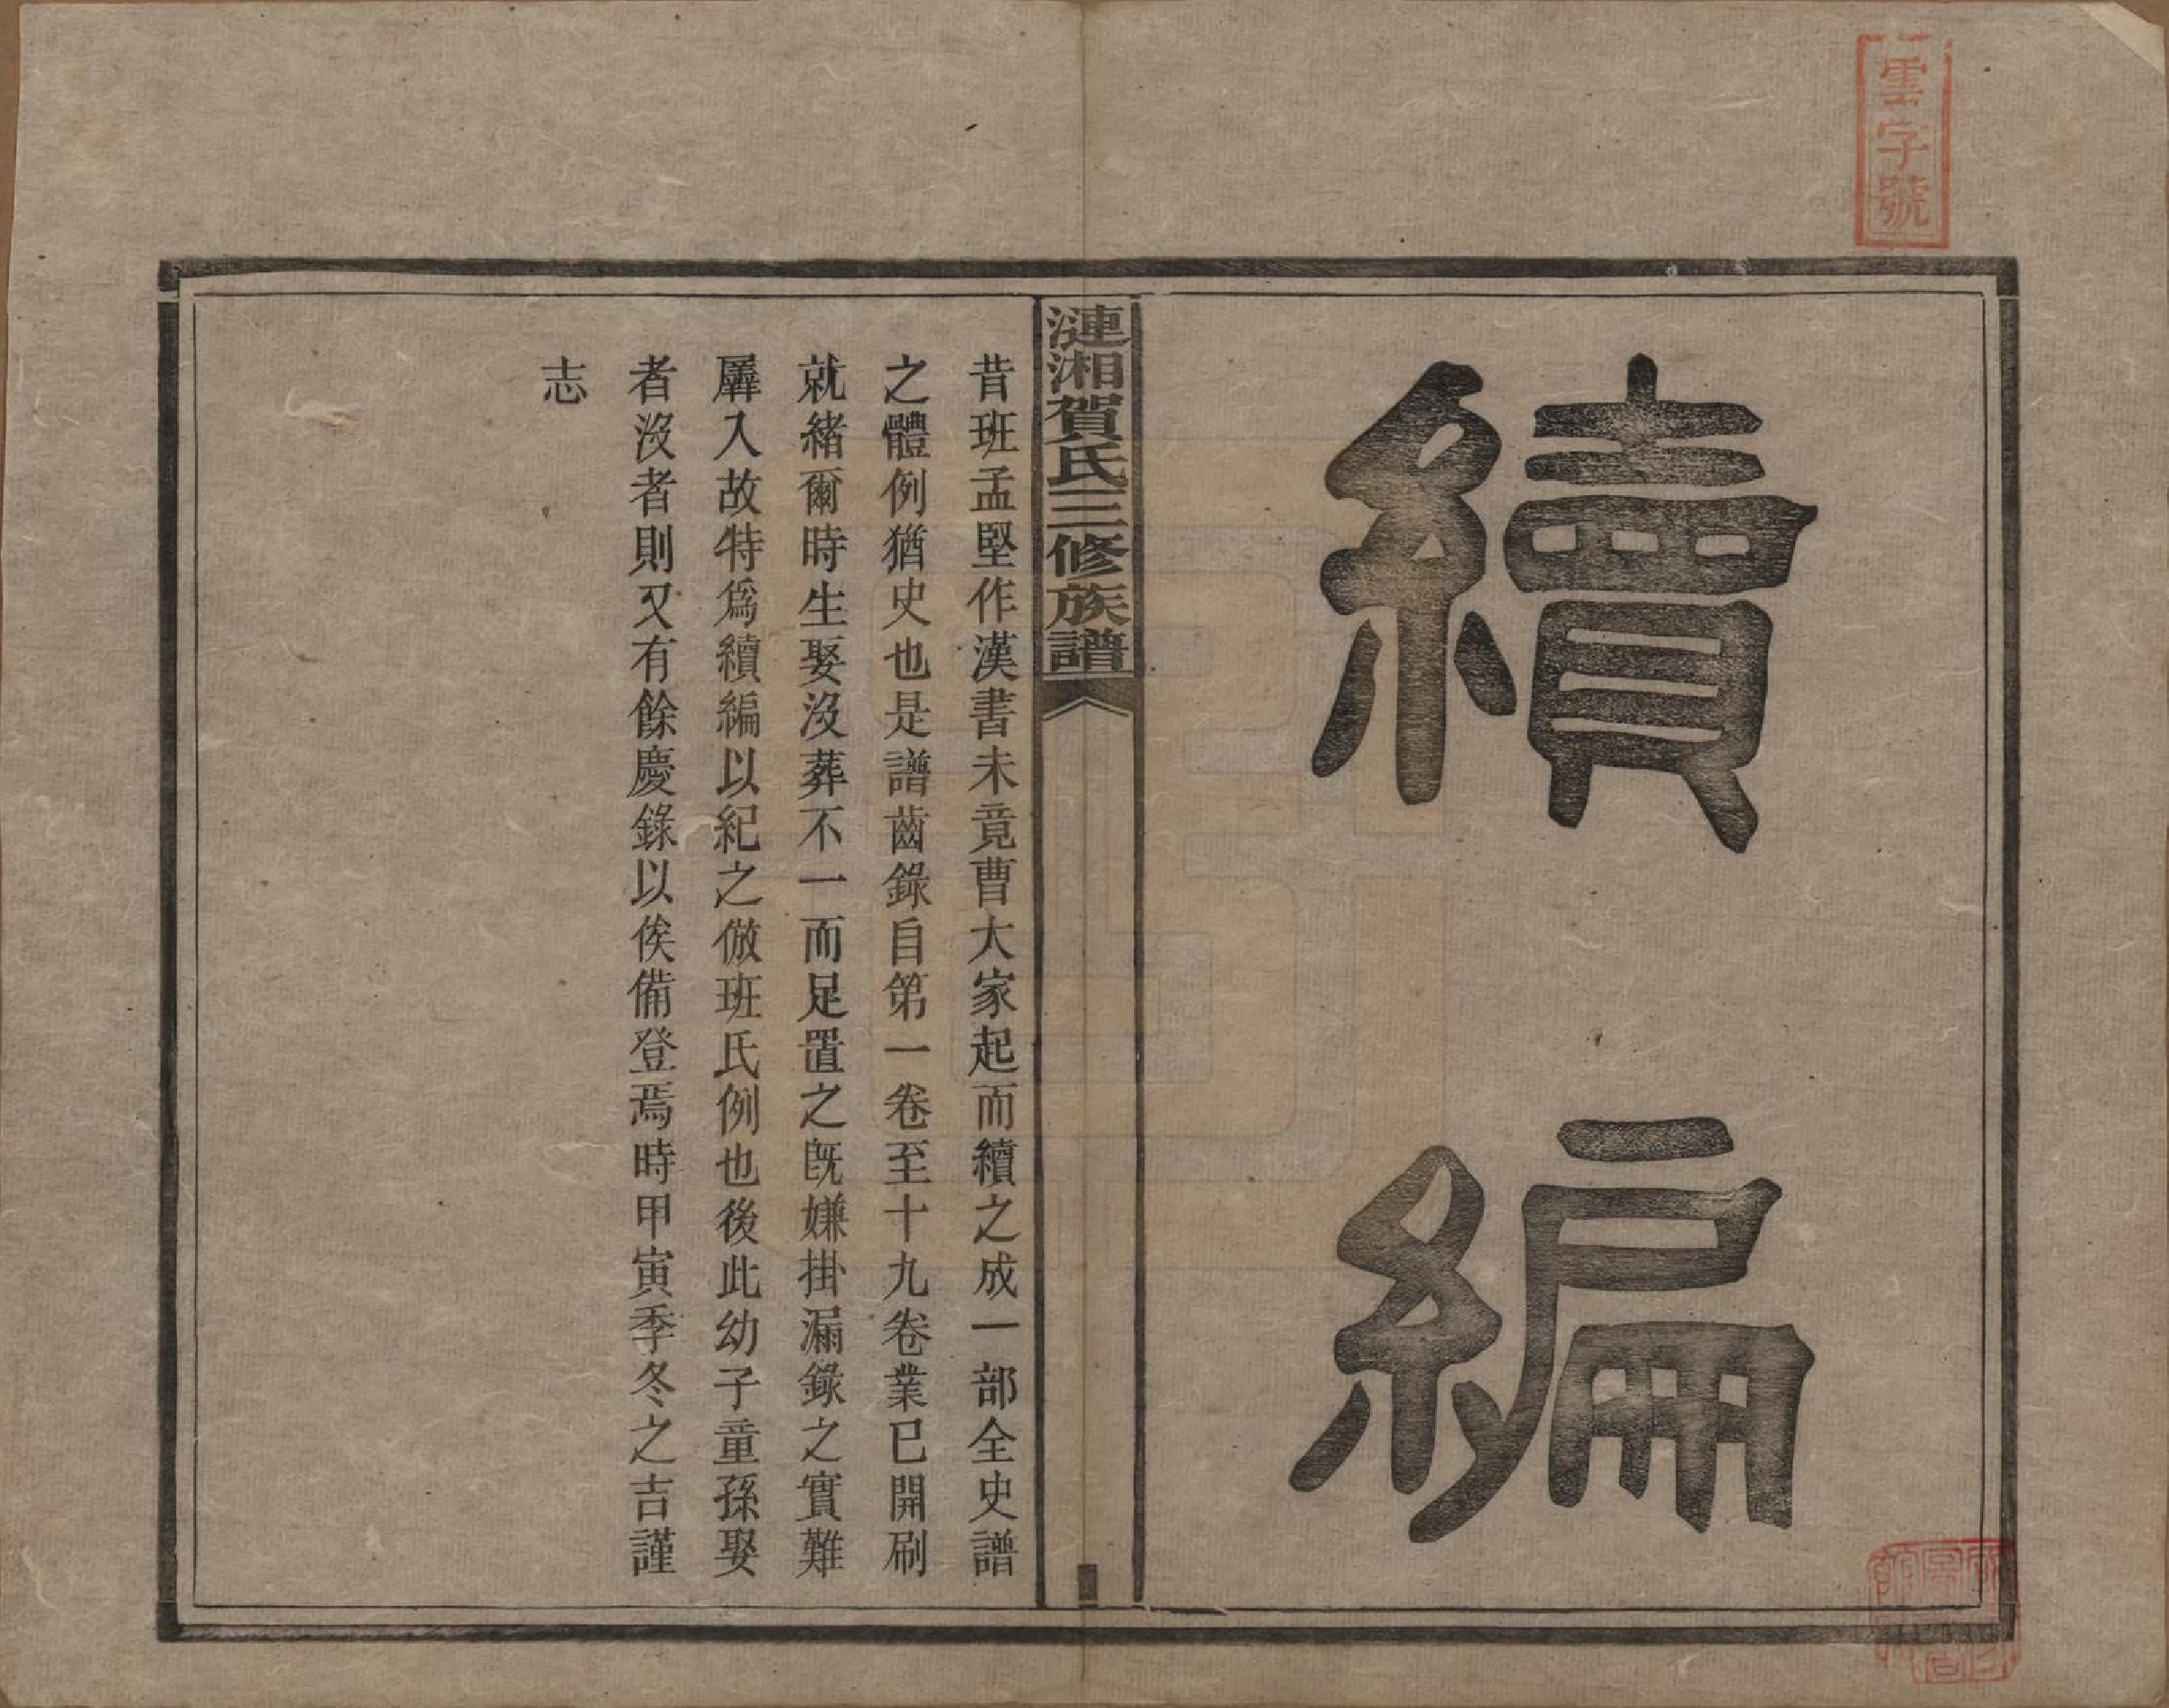 雲字號
續編
漣湘賀氏三修族譜
昔班孟堅作漢書未竟曹大家起而續之成一部全史譜
之體例猶史也是譜齒錄自第一卷至十九卷業已開刷
就緒爾時生娶沒葬不一而足置之旣嫌掛漏錄之實難
羼入故特爲續編以紀之倣班氏例也後此幼子童孫娶
者沒者則又有餘慶錄以俟備登焉時甲寅季冬之吉謹
志